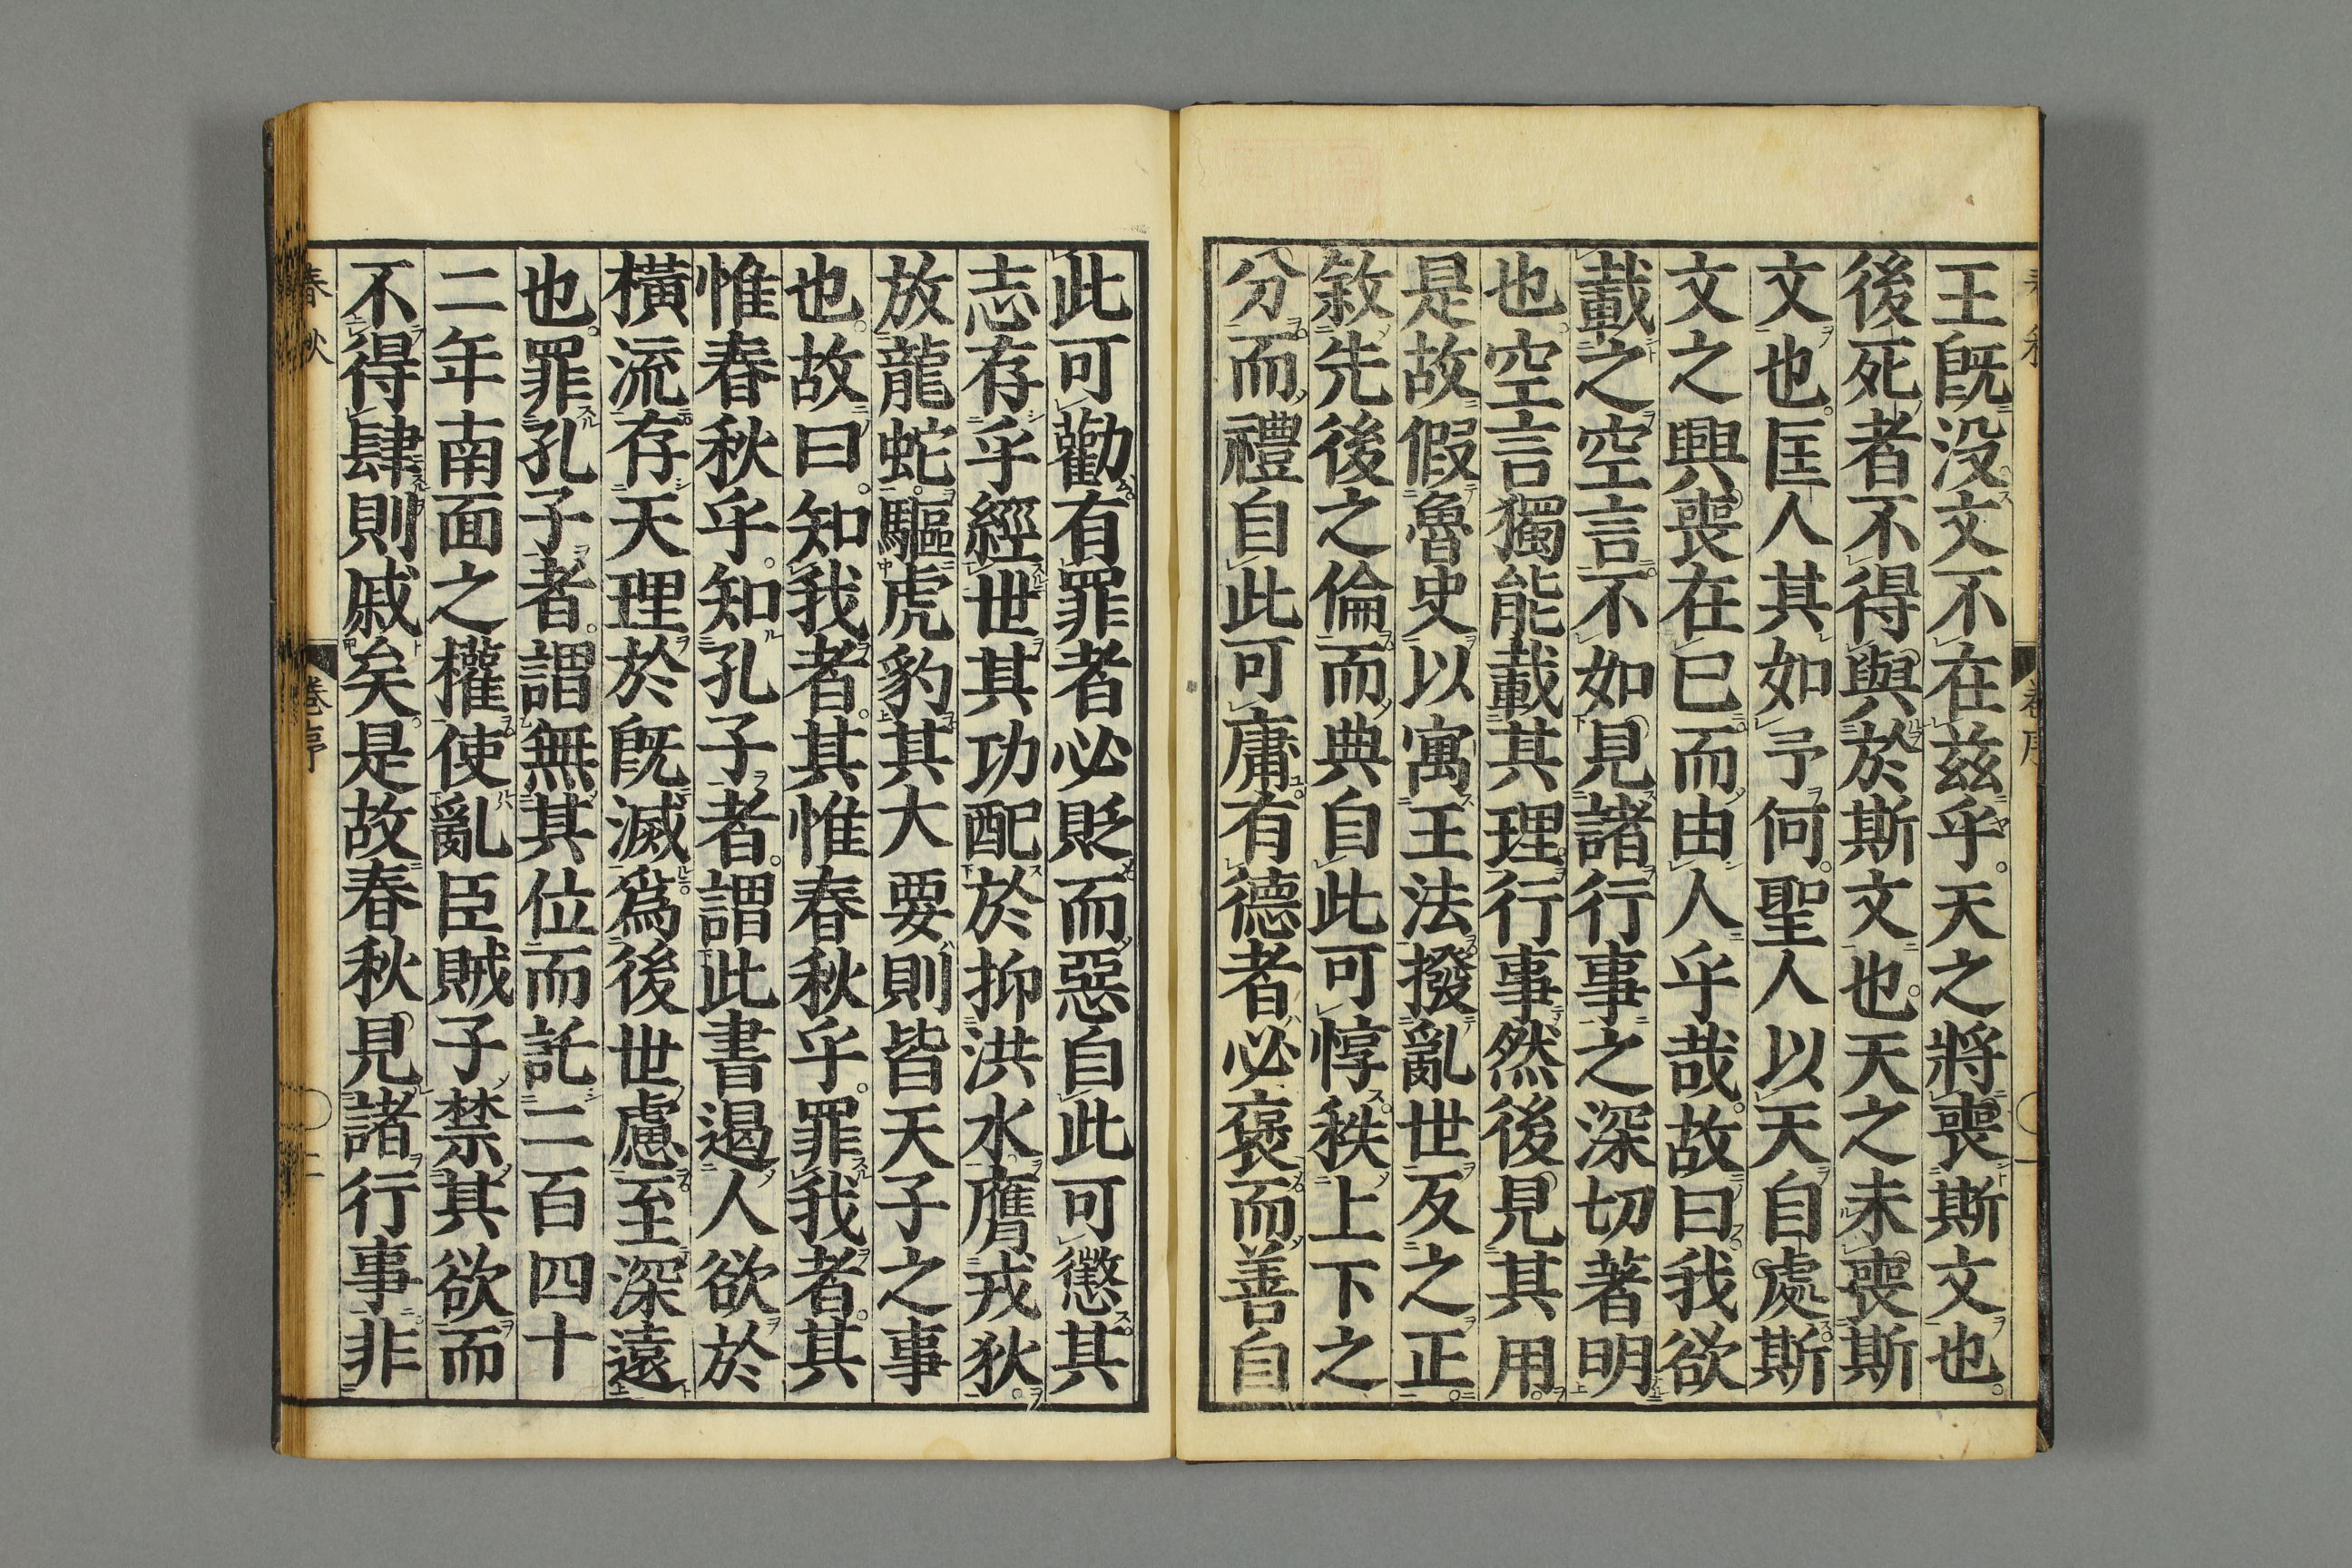 王既没文不在茲乎天之將喪斯文也
後死者不得與於斯文也天之未喪斯
文也匡人其如予何聖人以天自處斯
文之興喪在已而由人乎哉故曰我欲
載之空言不如見諸行事之深切著明
也空言獨能載其理行事然後見其用
是故假魯史以寓王法撥亂世反之正
敘先後之倫而典自此可惇秩上下之
分而禮自此可庸有德者必褒而善自
此可勸有罪者必貶而惡自此可懲其
志存乎經世其功配於抑洪水膺戎狄
放龍蛇驅虎豹其大要則皆天子之事
也故曰知我者其惟春秋乎罪我者其
惟春秋乎知孔子者謂此書遏人欲於
橫流存天理於既滅爲後世慮至深遠
也罪孔子者謂無其位而託二百四十
二年南面之權使亂臣賊子禁其欲而
不得肆則戚矣是故春秋見諸行事非
春秋 卷序 二